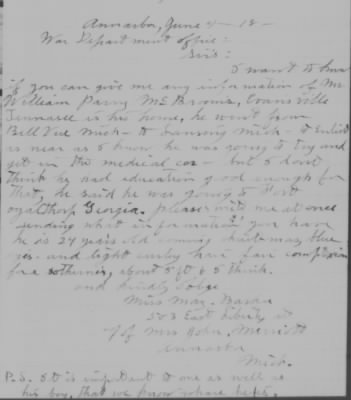 Annarbor, June 4-18-
War Department office:
Sirs:
I want to know
if you can give me any information of Mr
William Parry McBroom, Evansville
Tennasee is his home, he went from
Bell Vill Mich- to Lansing Mich- to Enlist
as near as I know he was going to try and
get in the medical cor- but I dont
think he had education good enough for
that, he said he was going to Fort
ogalthorp Georgia. please write me at once
sending what information you have
he is 24 years old coming
eyes and light curly hair fair complexion
for a sothener, about 5 ft & 5 I think.
and kindly oblige
Miss May
523 East Liberty st
c/o Mrs John Merriott
Annarbor
Mich.
P.S. It is important to me as well as
his boy, that we know where he is.